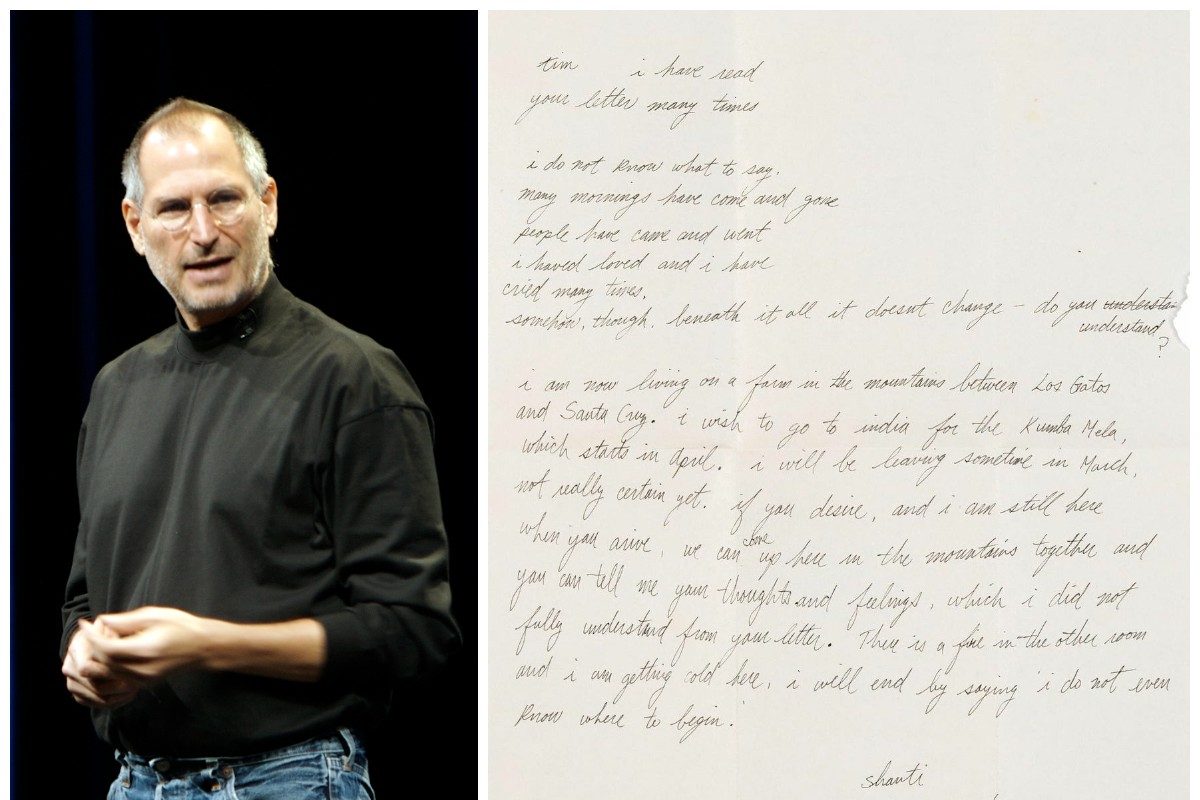 tim i have read
your letter many times
i do not know what to say.
many mornings have come and gone
people have came and went
i haved loved and i have
cried many times.
somehow, though, beneath it all it doesnt change – do you understa
understand
?
i am now living on a farm in the mountains between Los Gatos
and Santa Cruz. i wish to go to india for the Kumba Mela,
which starts in April. i will be leaving sometime in March,
not really certain yet. if you desire, and i am still here
when you arive, we can come up here in the mountains together and
you can tell me your thoughts and feelings, which i did not
fully understand from your letter. There is a fire in the other room
and i am getting cold here. i will end by saying i do not even
know where to begin.
shanti